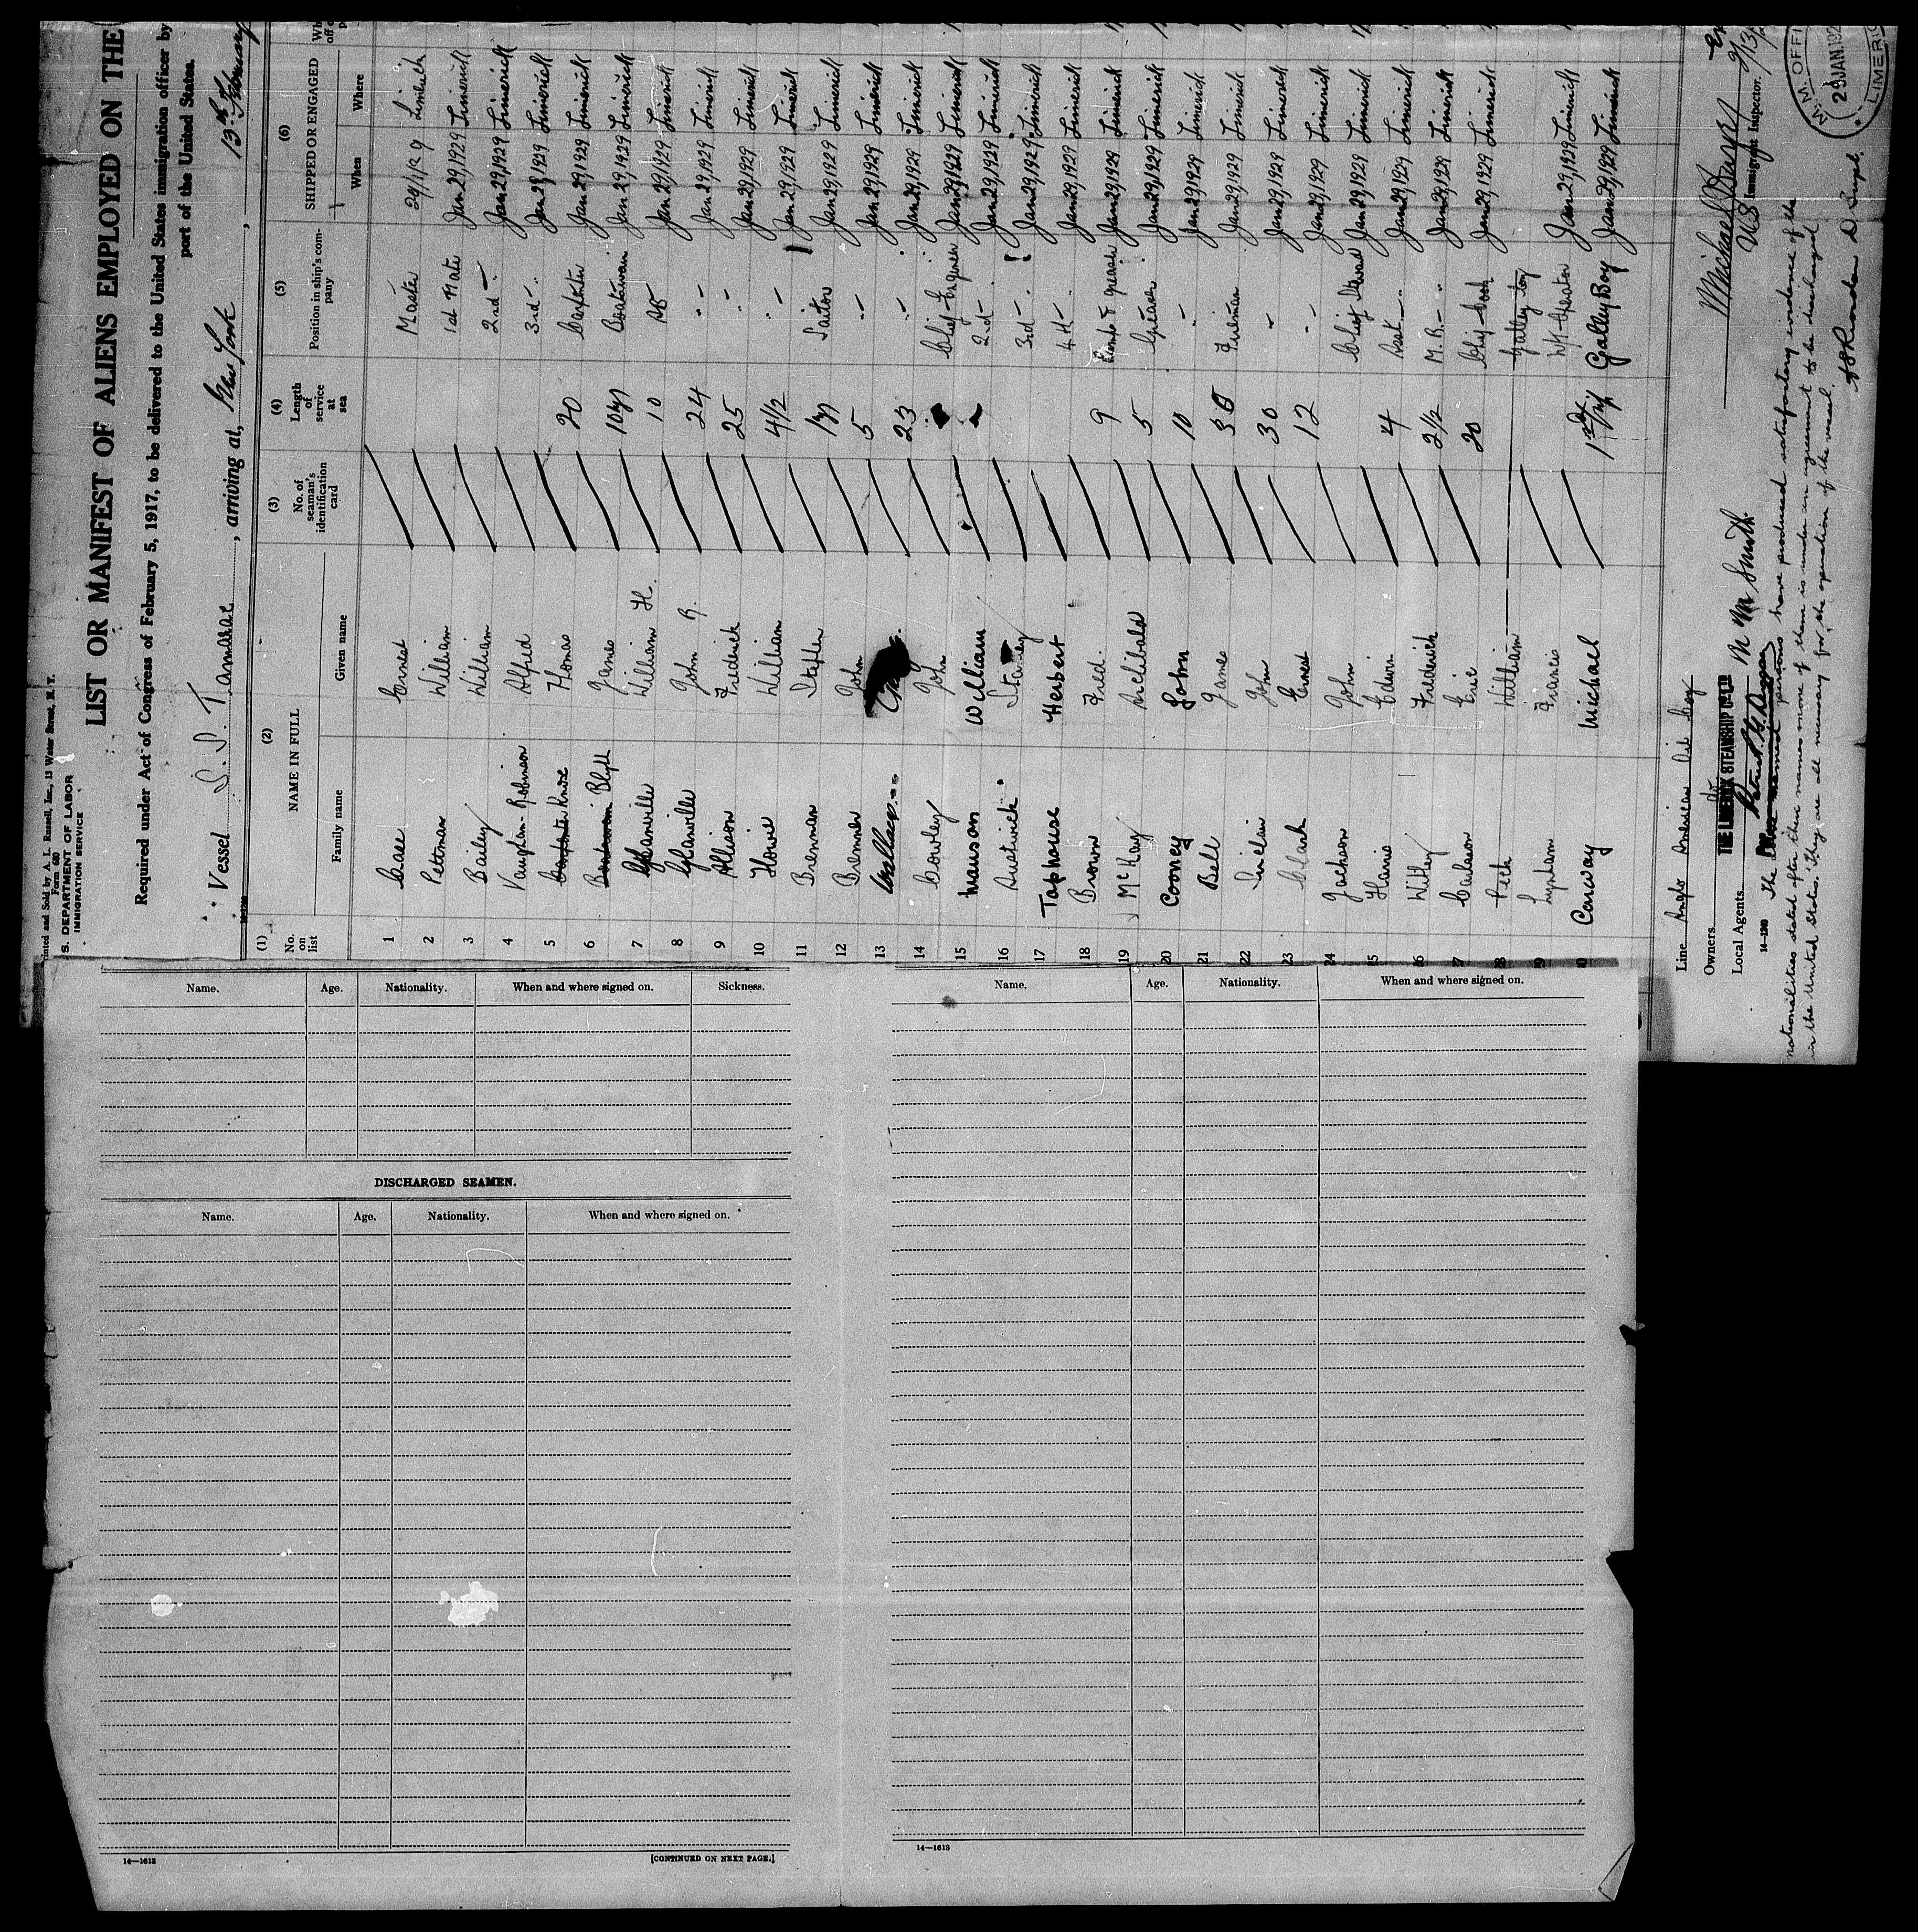 Printed and Sold by A. L. Russell, Inc., 13 Water Street, N. Y.
Form 680
S. DEPARTMENT OF LABOR
IMMIGRATION SERVICE
LIST OR MANIFEST OF ALIENS EMPLOYED ON THE
Required under Act of Congress of February 5, 1917, to be delivered to the United States immigration officer by
port of the United States.
Vessel S. S. Tamarac, arriving at, New York, 13th February
(1) (2) (3) (4) (5) (6)
No. on list NAME IN FULL No. of seaman's identification card Length of service at sea Position in ship's company SHIPPED OR ENGAGED
Family name Given name When Where
1 Case Ernest Master 29/1/29 Limerick
2 Pettman William 1st Mate Jan 29, 1929 Limerick
3 Bailey William 2nd - Jan 29, 1929 Limerick
4 Vaughan-Robinson Alfred 3rd - Jan 29, 1929 Limerick
5 Carpenter Thomas 20 Carpenter Jan 29, 1929 Limerick
6 Boatswain Blyth James 10 yrs Boatswain Jan 29, 1929 Limerick
7 Glanville William H. 10 AB Jan 29, 1929 Limerick
8 Glanville John R. 24 - Jan 29, 1929 Limerick
9 Allison Frederick 25 - Jan 29, 1929 Limerick
10 Howe William 4 1/2 - Jan 29, 1929 Limerick
11 Brennan Stephen Sailor Jan 29, 1929 Limerick
12 Brenner John 5 - Jan 29, 1929 Limerick
13 Wallace 23 - Jan 29, 1929 Limerick
14 Cowley John Chief Engineer Jan 29, 1929 Limerick
15 Manson William 2nd - Jan 29, 1929 Limerick
16 Austwick Stanley 3rd - Jan 29, 1929 Limerick
17 Taphouse Herbert 4th - Jan 29, 1929 Limerick
18 Brown Fred. 9 Jan 29, 1929 Limerick
19 McKay Archibald 5 Greaser Jan 29, 1929 Limerick
20 Cooney John 10 - Jan 29, 1929 Limerick
21 Bell James 30 Fireman Jan 29, 1929 Limerick
22 Sinclair John 30 - Jan 29, 1929 Limerick
23 Clark Ernest 12 - Jan 29, 1929 Limerick
24 Jackson John Chief Steward Jan 29, 1929 Limerick
25 Harris Edwin 4 Asst - Jan 29, 1929 Limerick
26 Witley Frederick 2 1/2 M. R. - Jan 29, 1929 Limerick
27 Carlson Eric 20 Chief Cook Jan 29, 1929 Limerick
28 Peck William Galley boy
29 Lypham Francis W/- Operator Jan 29, 1929 Limerick
30 Conway Michael Galley Boy Jan 29, 1929 Limerick
Line Anglo American Oil Coy
Owners do
Local Agents THE LIMERICK STEAMSHIP Co LTD
14-1240
M M Smith
Michael
US Immigrant Inspector.
M. M. OFFI
29 JAN. 192
LIMERIC
The above named persons have produced satisfactory evidence of the
nationalities stated after their names none of them is under an agreement to be discharged
in the United States. They are all necessary for the operation of the vessel.
Supt.
Name. Age. Nationality. When and where signed on. Sickness.
DISCHARGED SEAMEN.
Name. Age. Nationality. When and where signed on.
14—1613
[CONTINUED ON NEXT PAGE.]
Name. Age. Nationality. When and where signed on.
14—1613